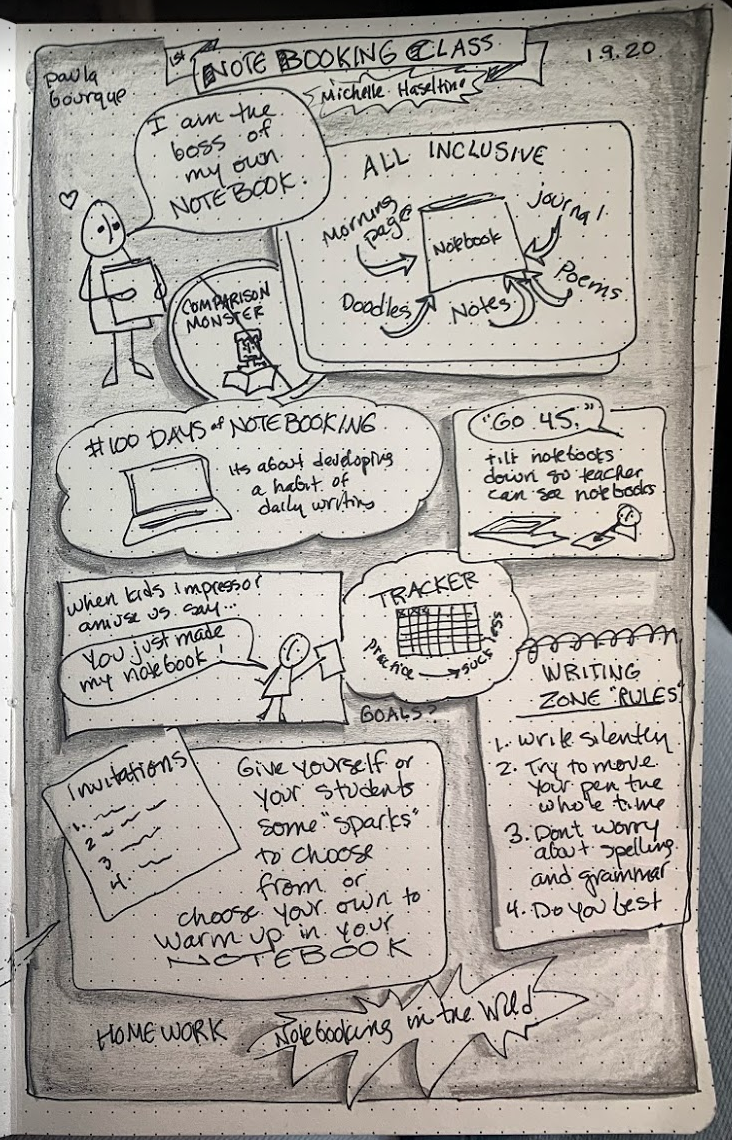 paula
bourque
1st NOTE BOOKING CLASS
Michelle Haseltine
1.9.20
I am the
boss of
my own
NOTEBOOK.
ALL INCLUSIVE
Morning
pages
Notebook
Journal
Doodles
Notes
Poems
COMPARISON
MONSTER
#100 DAYS of NOTEBOOKING
its about developing
a habit of
daily writing
"Go 45."
tilt notebooks
down so teacher
can see notebooks
when kids impress or
amuse us say...
You just made
my notebook!
TRACKER
practice → suck less
GOALS?
WRITING
ZONE "RULES"
1. Write silently
2. Try to move
your pen the
whole time
3. Don't worry
about spelling
and grammar
4. Do You best
Invitations
1.
2
3
4.
Give yourself or
your students
some "sparks"
to choose
from or
choose your own to
warm up in your
NOTEBOOK
HOMEWORK
Notebooking in the Wild